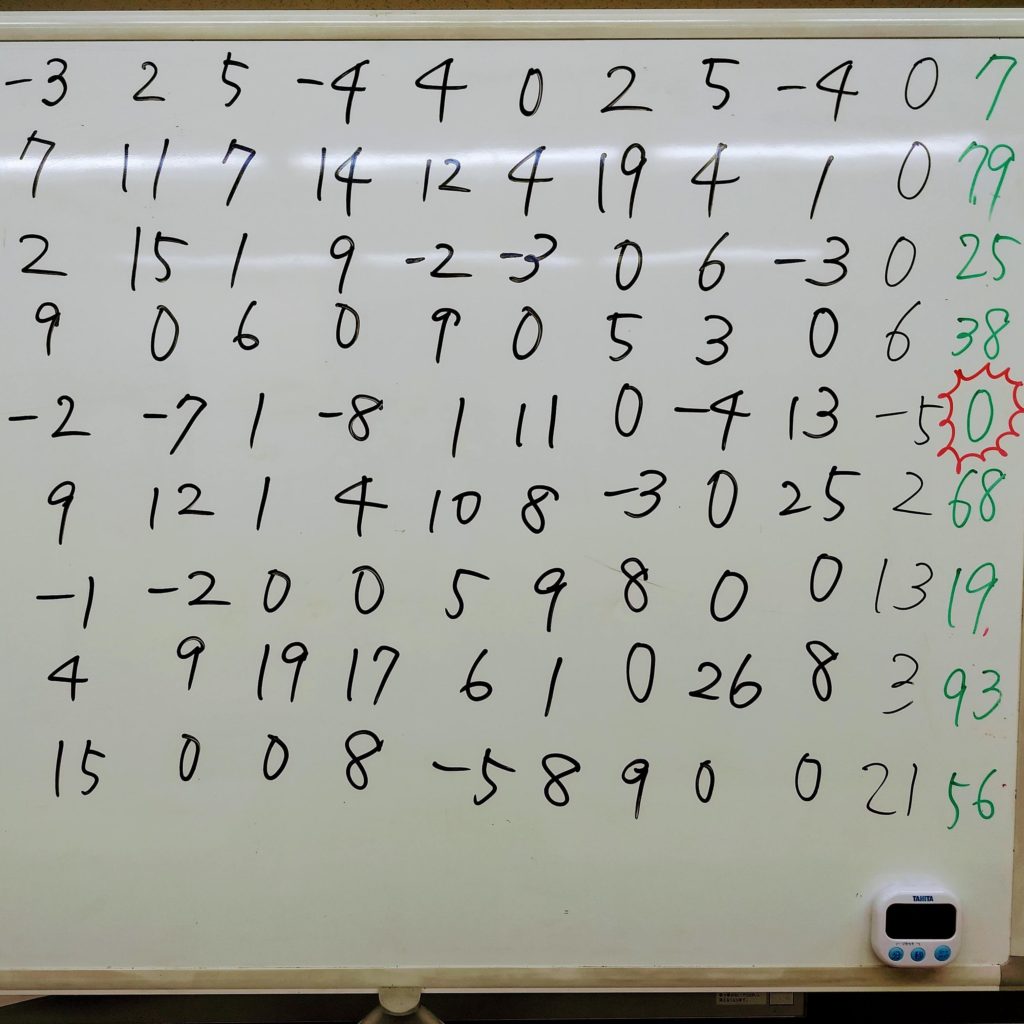 -3 2 5 -4 4 0 2 5 -4 0 7
7 11 7 14 12 4 19 4 1 0 79
2 15 1 9 -2 -3 0 6 -3 0 25
9 0 6 0 9 0 5 3 0 6 38
-2 -7 1 -8 1 11 0 -4 13 -5 0
9 12 1 4 10 8 -3 0 25 2 68
-1 -2 0 0 5 9 8 0 0 13 19
4 9 19 17 6 1 0 26 8 3 93
15 0 0 8 -5 8 9 0 0 21 56
TANITA